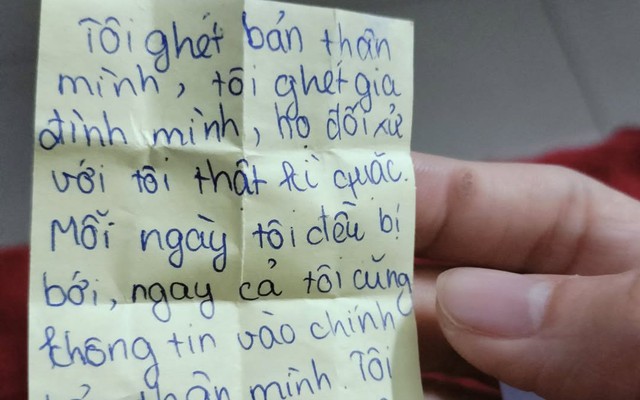 Tôi ghét bản thân
mình, tôi ghét gia
đình mình, họ đối xử
với tôi thật kì quặc.
Mỗi ngày tôi đều bị
bới, ngay cả tôi cũng
không tin vào chính
thân mình. Tôi